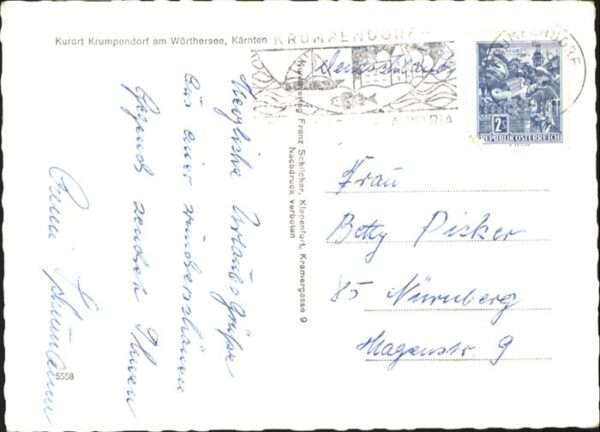 Kurort Krumpendorf am Wörthersee, Kärnten
KRUMPENDORF
Deutschland
2 S
REPUBLIK ÖSTERREICH
Herzliche Urlaubsgrüße
aus einer wunderschönen
Gegend senden Ihnen
Kunstverlag Franz Schilcher, Klagenfurt, Kramergasse 9
Nachdruck verboten
Frau
Betty Picker
85 Nürnberg
Hagenstr 9
5558